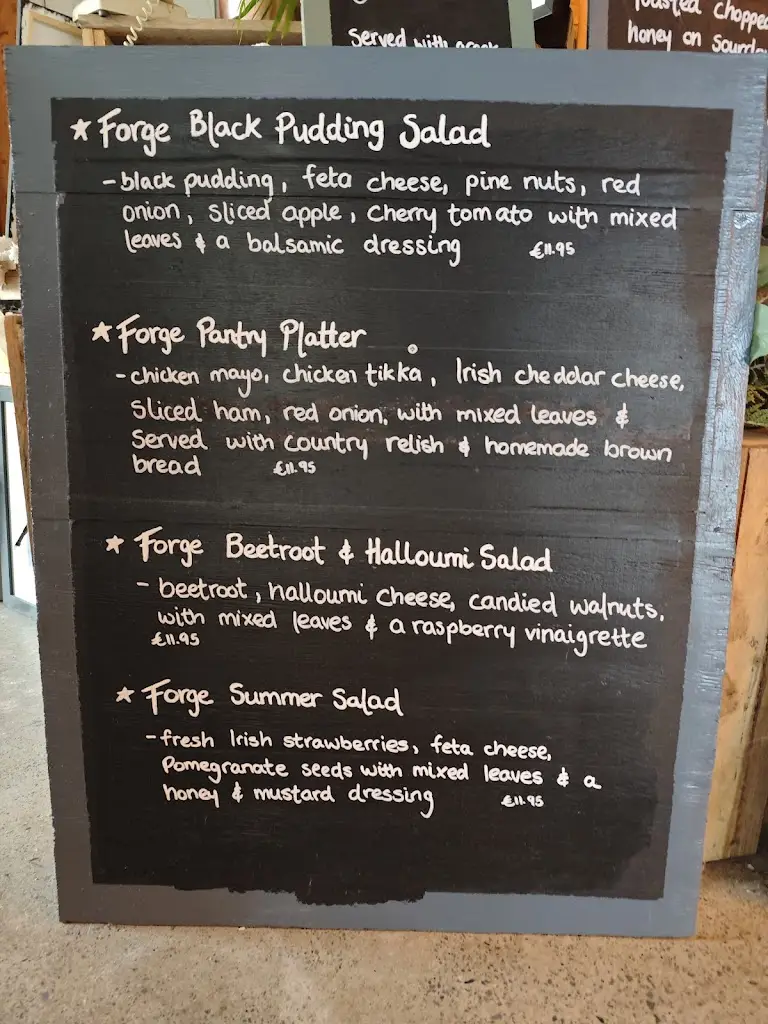 Served with
Toasted chopped
honey on
★ Forge Black Pudding Salad
- black pudding, feta cheese, pine nuts, red
onion, sliced apple, cherry tomato with mixed
leaves & a balsamic dressing €11.95
★ Forge Pantry Platter
- chicken mayo, chicken tikka, Irish cheddar cheese,
sliced ham, red onion, with mixed leaves &
served with country relish & homemade brown
bread €11.95
★ Forge Beetroot & Halloumi Salad
- beetroot, halloumi cheese, candied walnuts,
with mixed leaves & a raspberry vinaigrette
€11.95
★ Forge Summer Salad
- fresh Irish strawberries, feta cheese,
Pomegranate seeds with mixed leaves & a
honey & mustard dressing €11.95